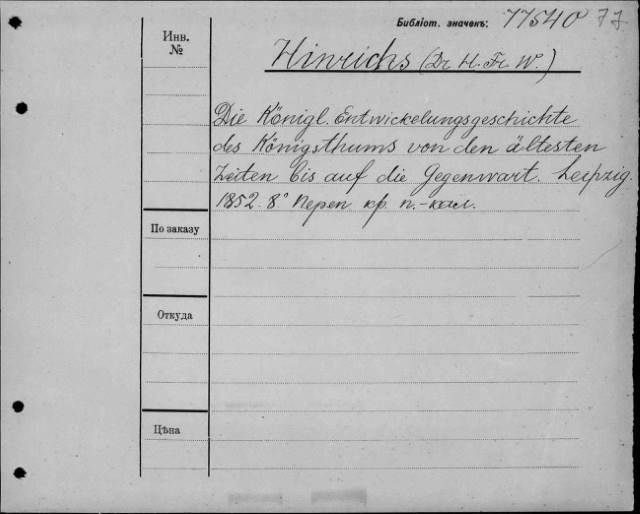 Библіот. значекъ: 77540
Инв. №
Hinrichs (Dr. H. Fr. W.)
Die Königl. Entwickelungsgeschichte
des Königsthums von den ältesten
Zeiten bis auf die Gegenwart. Leipzig.
1852. 8° Переп. кр. п.-кал.
По заказу
Откуда
Цѣна